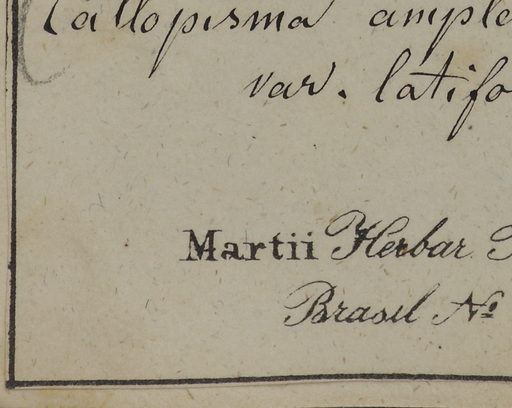 Callopisma ample
var. latifo
Martii Herbar.
Brasil No.